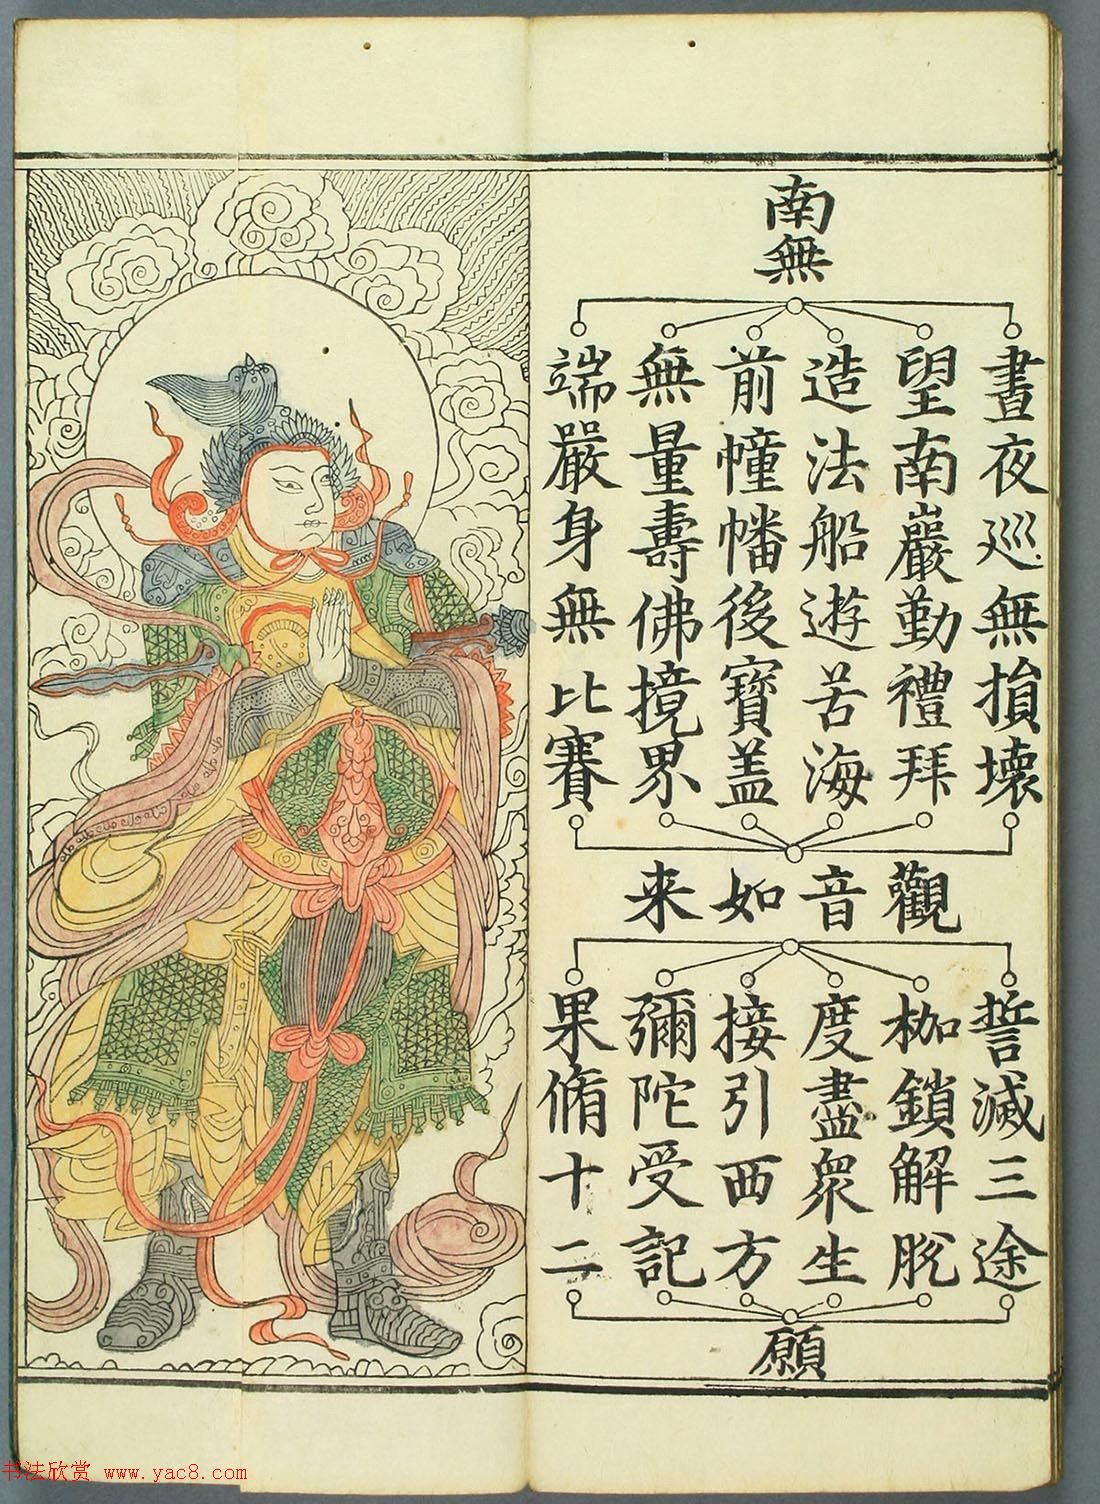 南無
晝夜巡無損壞
望南嚴勤禮拜
造法船遊苦海
前幢幡後寶盖
無量壽佛境界
端嚴身無比賽
觀音如来
誓滅三途
枷鎖解脫
度盡衆生
接引西方
彌陀受記
果脩十二
願
书法欣赏 www.yac8.com